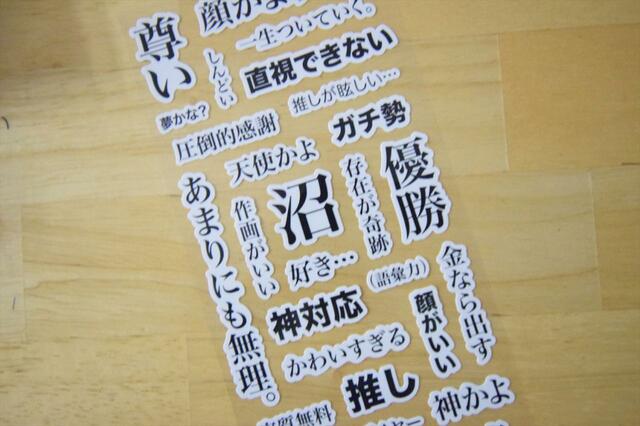 尊い
一生ついていく。
しんどい
直視できない
夢かな?
推しが眩しい…
圧倒的感謝
ガチ勢
天使かよ
優勝
沼
存在が奇跡
作画がいい
あまりにも無理。
好き…
(語彙力)
金なら出す
神対応
顔がいい
かわいすぎる
推し
神かよ